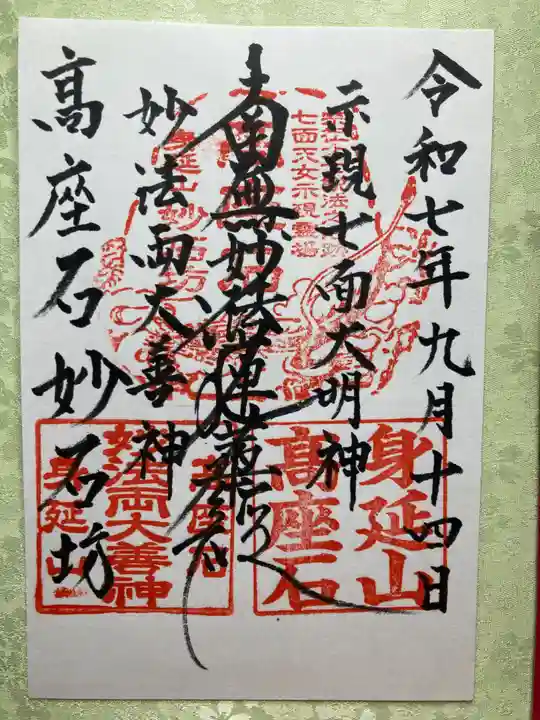 令和七年九月十四日
示現七面大明神
南無妙法蓮華経
妙法両大善神
高座石妙石坊
七面天女示現霊場
身延山妙石坊
身延山
高座石
高座石
妙法両大善神
身延山